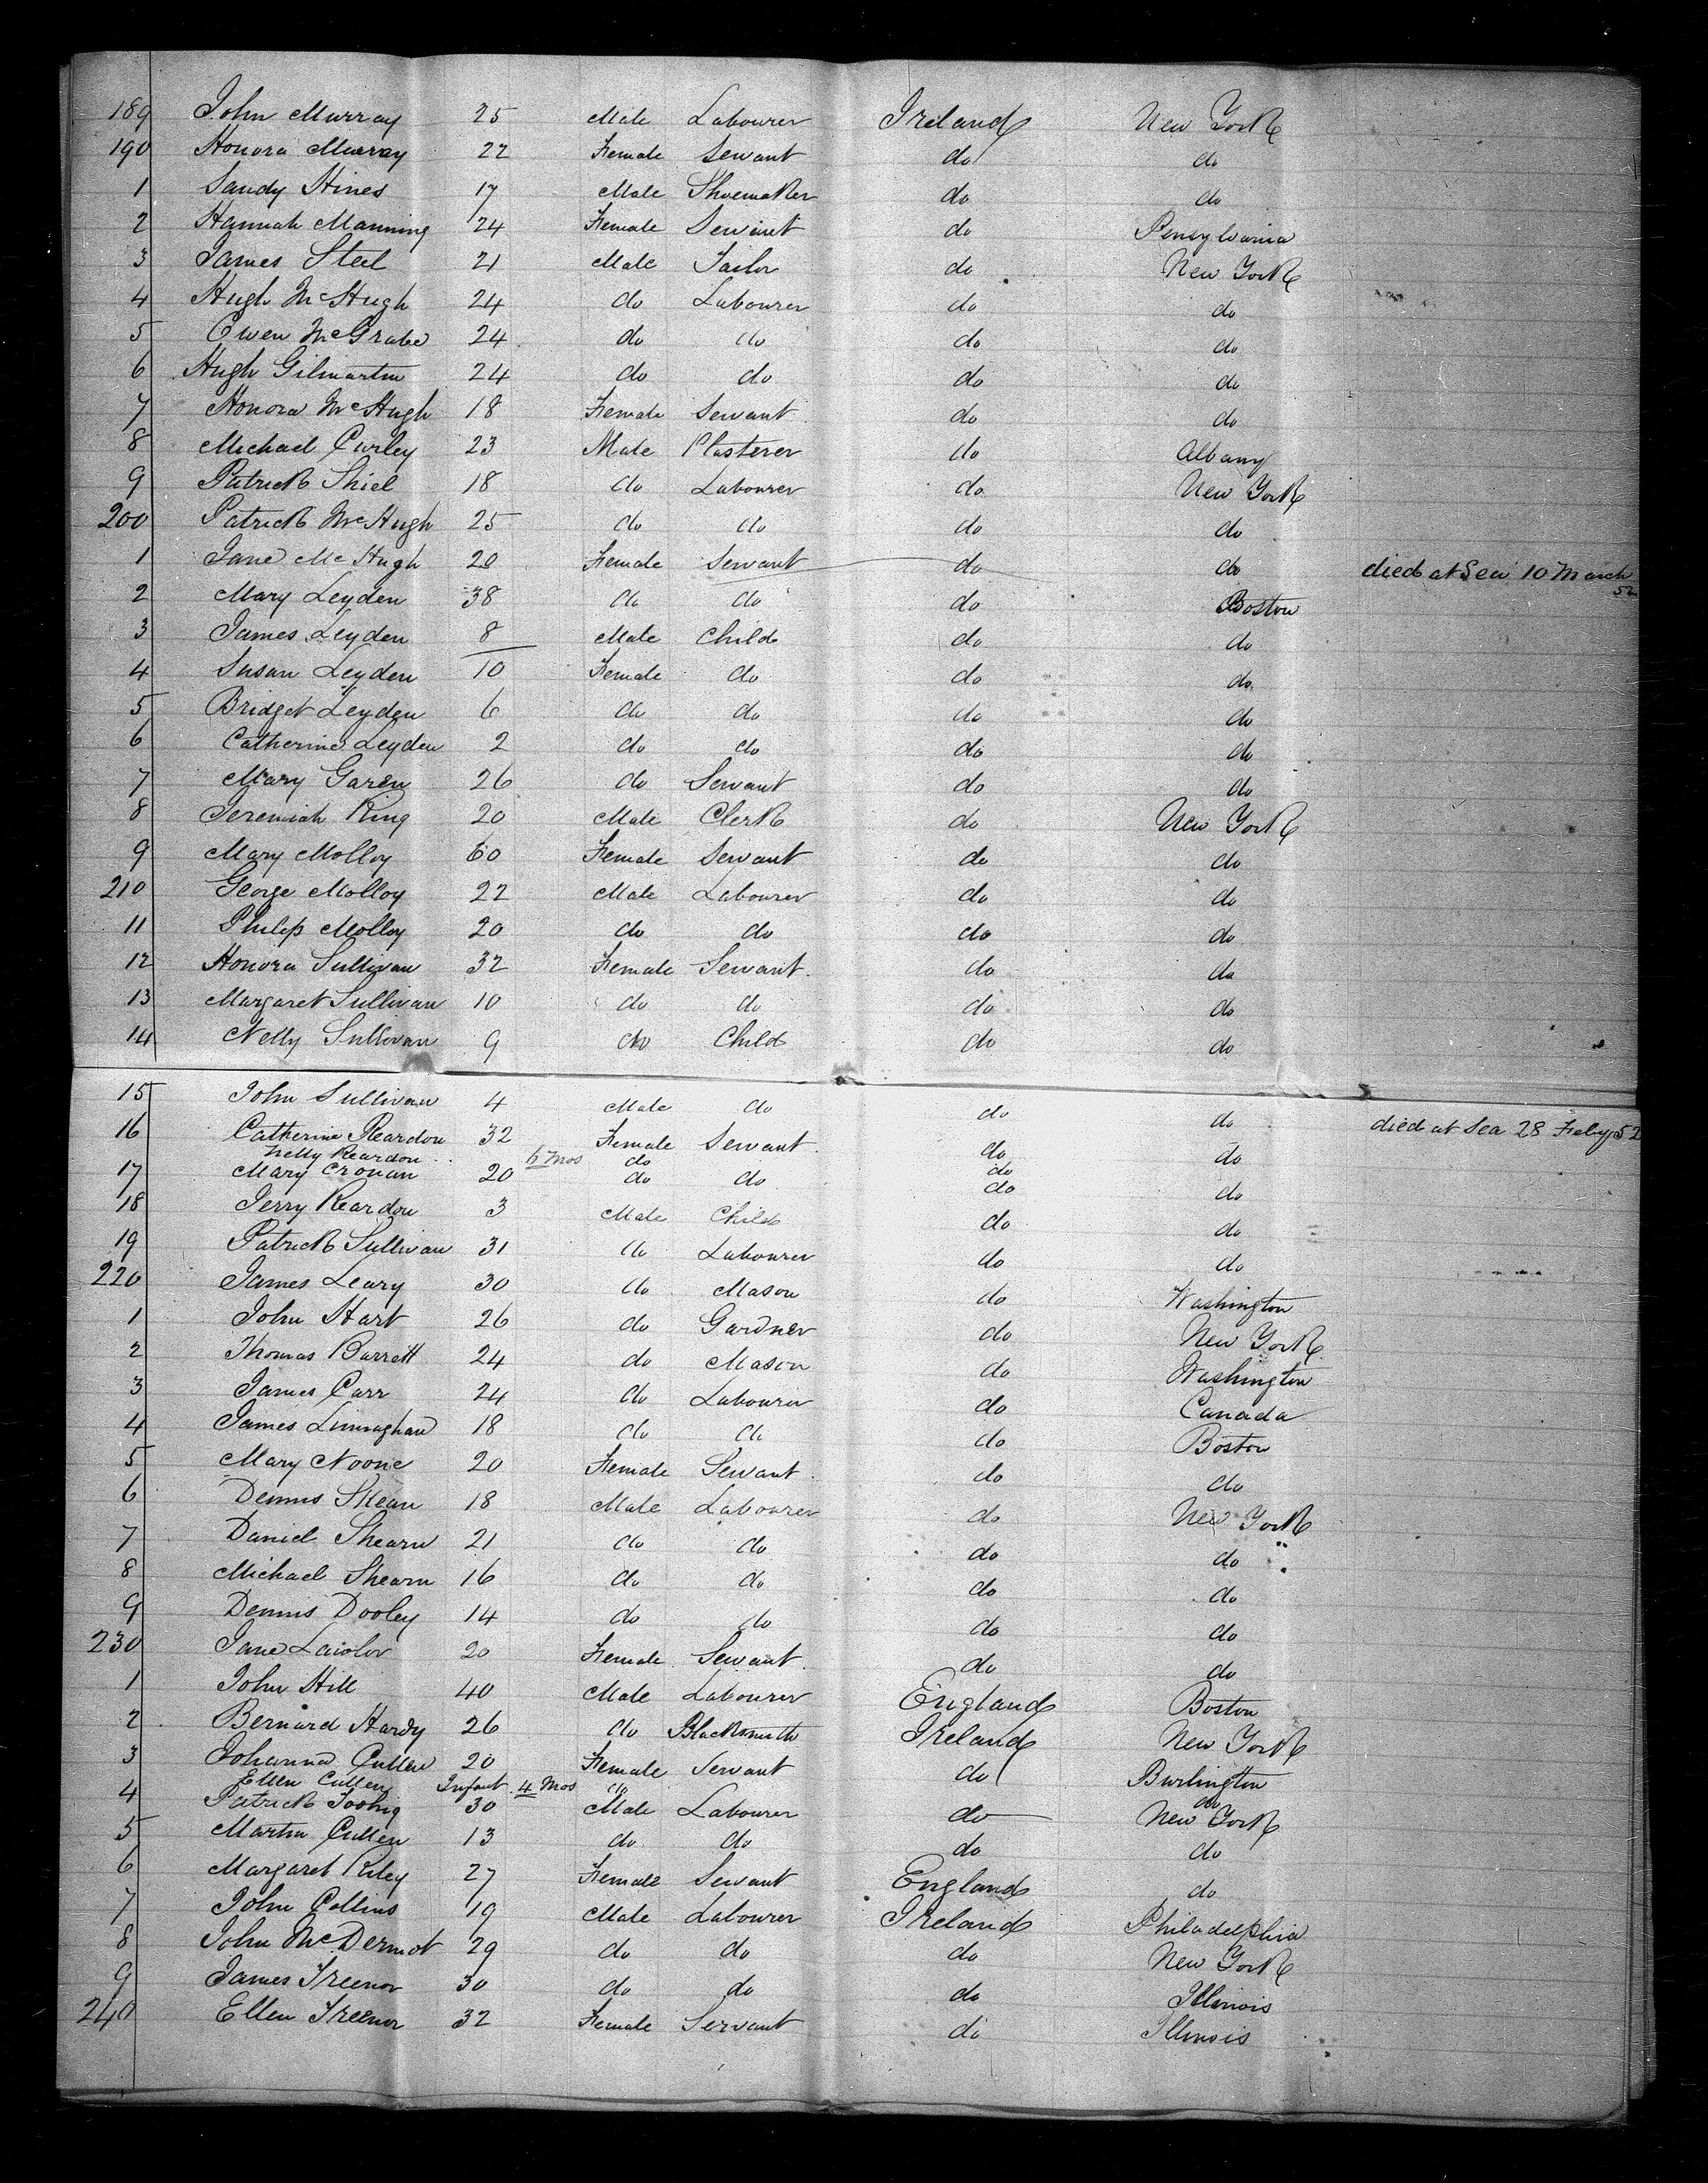 189 John Murray 25 Male Labourer Ireland New York
190 Honora Murray 22 Female Servant do do
1 Sandy Hines 17 Male Shoemaker do do
2 Hannah Manning 24 Female Servant do Pensylvania
3 James Steel 21 Male Tailor do New York
4 Hugh McHugh 24 do Labourer do do
5 Owen McGrabe 24 do do do do
6 Hugh Gilmartin 24 do do do do
7 Honora McHugh 18 Female Servant do do
8 Michael Curley 23 Male Plasterer do Albany
9 Patrick Shiel 18 do Labourer do New York
200 Patrick McHugh 25 do do do do
1 Jane McHugh 20 Female Servant do do died at Sea 10 March 52
2 Mary Leyden 38 do do do Boston
3 James Leyden 8 Male Child do do
4 Susan Leyden 10 Female do do do
5 Bridget Leyden 6 do do do do
6 Catherine Leyden 2 do do do do
7 Mary Garen 26 do Servant do do
8 Jeremiah King 20 Male Clerk do New York
9 Mary Molloy 60 Female Servant do do
210 George Molloy 22 Male Labourer do do
11 Philip Molloy 20 do do do do
12 Honora Sullivan 32 Female Servant do do
13 Margaret Sullivan 10 do do do do
14 Nelly Sullivan 9 do Child do do
15 John Sullivan 4 Male do do do died at Sea 28 Feby 52
16 Catherine Reardon 32 Female Servant do do
Nelly Reardon 6 Mos do do
17 Mary Cronan 20 do do do do
18 Jerry Reardon 3 Male Child do do
19 Patrick Sullivan 31 do Labourer do do
220 James Leary 30 do Mason do Washington
1 John Hart 26 do Gardner do New York
2 Thomas Barrett 24 do Mason do Washington
3 James Carr 24 do Labourer do Canada
4 James 18 do do do Boston
5 Mary Noone 20 Female Servant do do
6 Dennis Skean 18 Male Labourer do New York
7 Daniel Shearn 21 do do do do
8 Michael Shearn 16 do do do do
9 Dennis Dooley 14 do do do do
230 Jane Lawlor 20 Female Servant do do
1 John Hill 40 Male Labourer England Boston
2 Bernard Hardy 26 do Blacksmith Ireland New York
3 Johanna Cullen 20 Female Servant do Burlington
Ellen Cullen Infant 4 Mos do do
4 Patrick Toohig 30 Male Labourer do New York
5 Martin Cullen 13 do do do do
6 Margaret Riley 27 Female Servant England do
7 John Collins 19 Male Labourer Ireland Philadelphia
8 John McDermot 29 do do do New York
9 James Treenor 30 do do do Illinois
240 Ellen Treenor 32 Female Servant do Illinois